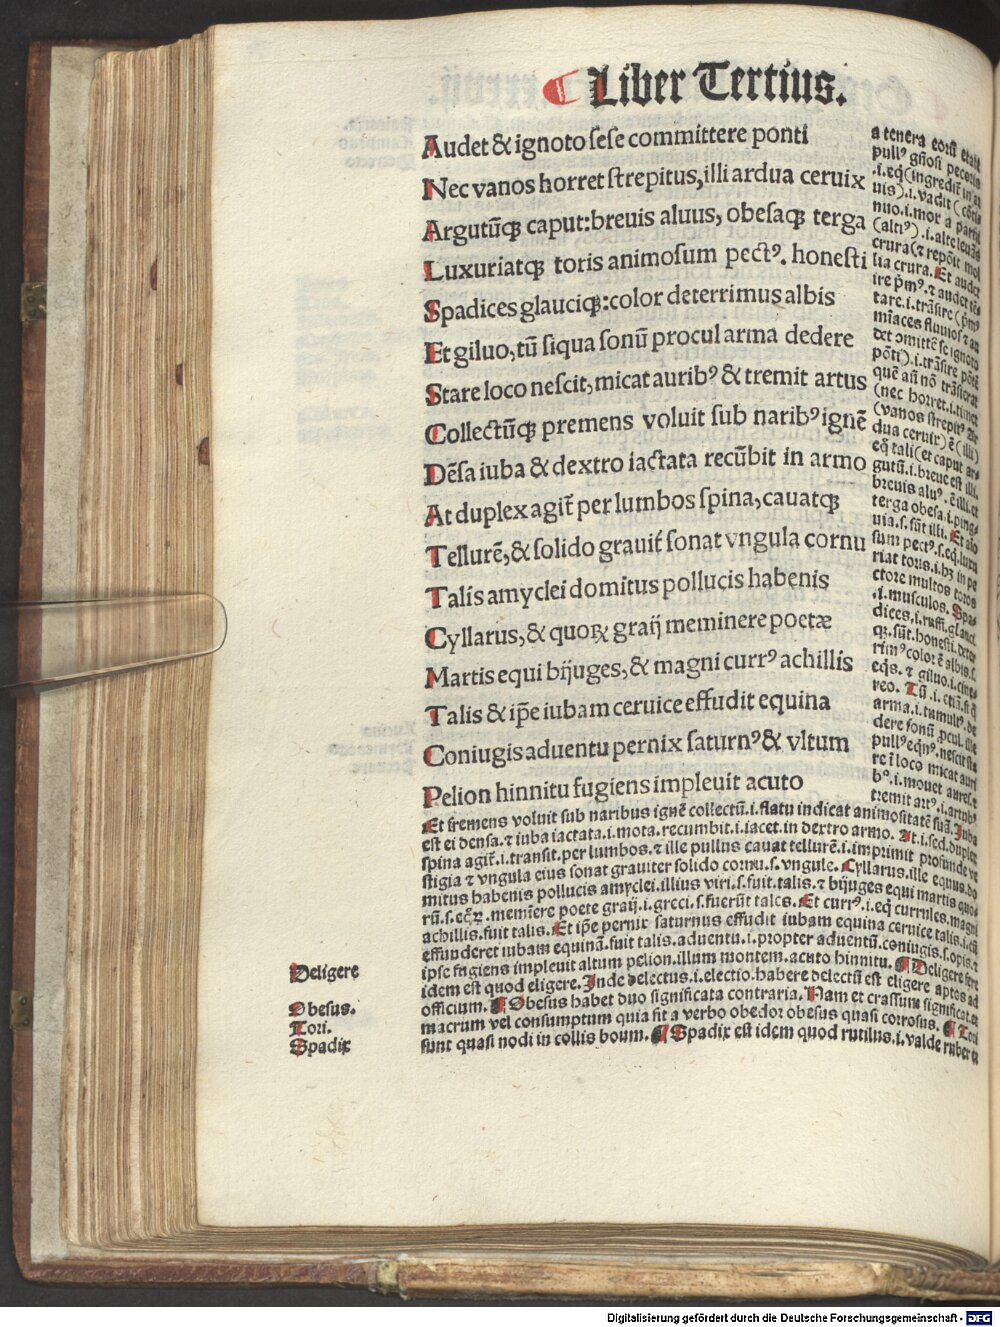 Liber Tertius.
Audet & ignoto sese committere ponti
Nec vanos horret strepitus, illi ardua ceruix
Argutūqꝫ caput: breuis aluus, obesaqꝫ terga
Luxuriatqꝫ toris animosum pectꝰ. honesti
Spadices glauciqꝫ: color deterrimus albis
Et giluo, tū siqua sonū procul arma dedere
Stare loco nescit, micat auribꝰ & tremit artus
Collectūqꝫ premens voluit sub naribꝰ ignē
Dēsa iuba & dextro iactata recūbit in armo
At duplex agit̄ per lumbos spina, cauatqꝫ
Tellurē, & solido grauit̄ sonat vngula cornu
Talis amyclei domitus pollucis habenis
Cyllarus, & quoꝝ graij meminere poetæ
Martis equi bijuges, & magni currꝰ achillis
Talis & ip̄e iubam ceruice effudit equina
Coniugis aduentu pernix saturnꝰ & vltum
Pelion hinnitu fugiens impleuit acuto
a tenera eorū etate
pullꝰ gñosi pecoris
.i. eq̄ (ingredit̄ in ar
uis) .i. vadit (cōti
nuo .i. mor a partu
(altiꝰ) .i. alte leuās
crura (⁊ repōit mol
lia crura. Et audet
ire p̄mꝰ. ⁊ audet tē
tare .i. trāsire (p̄mꝰ
mīaces fluuios ⁊ au
det ɔmittē se ignoto
pōti) .i. trāsire pōtē
quē añ nō trāsierat
(nec horret .i. timet
(vanos strepitꝰ Ar
dua ceruix) ē (illi)
eq̄ tali (et caput ar
gutū .i. breue est illi.
breuis aluꝰ. ē illi. et
terga obesa .i. ping-
uia .s. sūt illi. Et aīo
sum pectꝰ .s. eq. luxu
riat toris .i. hꝫ in pe
ctore multos toros
.i. musculos. Spa-
dices .i. ruffi. glauci
qꝫ. sūt. honesti. deter
rimꝰ color ē albis .s.
eqs. ⁊ giluo .i. cine-
reo. Tū .i. etiā. si q̄
arma .i. tumultꝰ. de
dere sonū ꝓcul. ille
pullꝰ eqnꝰ. nescit sta
re ī loco micat auri
bꝰ .i. mouet aures. ⁊
tremit artꝰ .i. artubꝰ
Et fremens voluit sub naribus ignē collectū .i. flatu indicat animositatē suā. Juba
est ei densa. ⁊ iuba iactata .i. mota. recumbit .i. iacet. in dextro armo. At .i. sed. duplex
spina agit̄ .i. transit. per lumbos. ⁊ ille pullus cauat tellurē .i. imprimit profunde ve
stigia ⁊ vngula eius sonat grauiter solido cornu .s. vngule. Cyllarus. ille equus. do
mitus habenis pollucis amyclei. illius viri .s. fuit. talis. ⁊ bijuges equi martis quo-
rū .s. eq̄ꝝ. memīere poete graij .i. greci .s. fuerūt tales. Et currꝰ .i. eq̄ currules. magni
achillis. fuit talis. Et ip̄e pernix saturnus effudit iubam equina ceruice talis .i. cū
effunderet iubam equinā. fuit talis. aduentu .i. propter aduentū. coniugis .s. opis. ⁊
ipse fugiens impleuit altum pelion. illum montem. acuto hinnitu. ¶ Deligere fere
idem est quod eligere. Inde delectus .i. electio. habere delectū est eligere aptos ad
officium. ¶ Obesus habet duo significata contraria. Nam et crassum significat. et
macrum vel consumptum quia fit a verbo obedor obesus quasi corrosus. ¶ Tori
sunt quasi nodi in collis boum. ¶ Spadix est idem quod rutilus .i. valde ruber et
Deligere
Obesus.
Tori.
Spadix
Digitalisierung gefördert durch die Deutsche Forschungsgemeinschaft - DFG